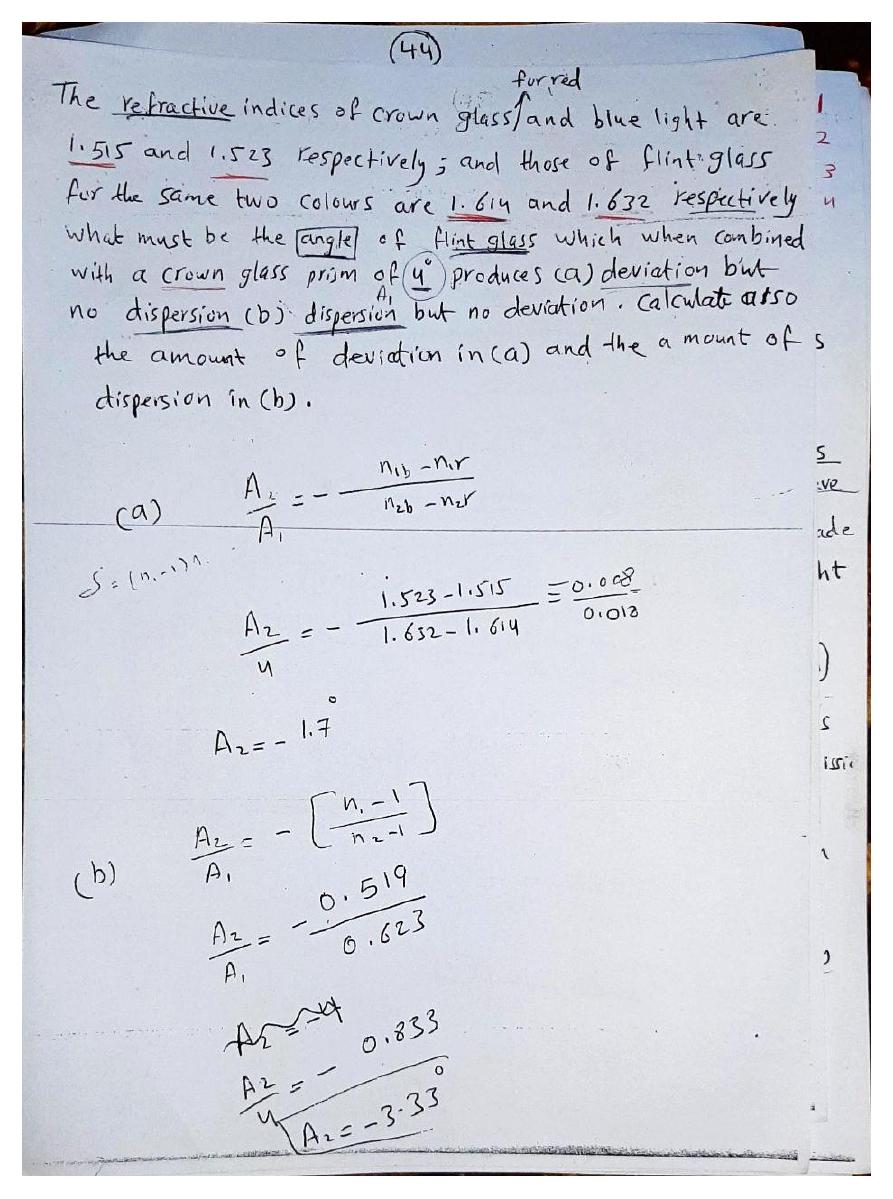 (44)
for red
The refractive indices of crown glass and blue light are
1.515 and 1.523 respectively; and those of flint glass
for the same two colours are 1.614 and 1.632 respectively
what must be the angle of flint glass which when combined
with a crown glass prism of 4° produces (a) deviation but
A₁
no dispersion (b) dispersion but no deviation. Calculate also
the amount of deviation in (a) and the amount of s
dispersion in (b).
(a) A₂/A₁ = - (n₁b - n₁r)/(n₂b - n₂r)
A₂/4 = - (1.523 - 1.515)/(1.632 - 1.614) = 0.008/0.018
A₂ = - 1.7°
(b) A₂/A₁ = - [(n₁ - 1)/(n₂ - 1)]
A₂/A₁ = - 0.519/0.623
A₂ = -4
A₂/4 = - 0.833
A₂ = -3.33°
1
2
3
4
s
ve
ade
ht
)
s
issic